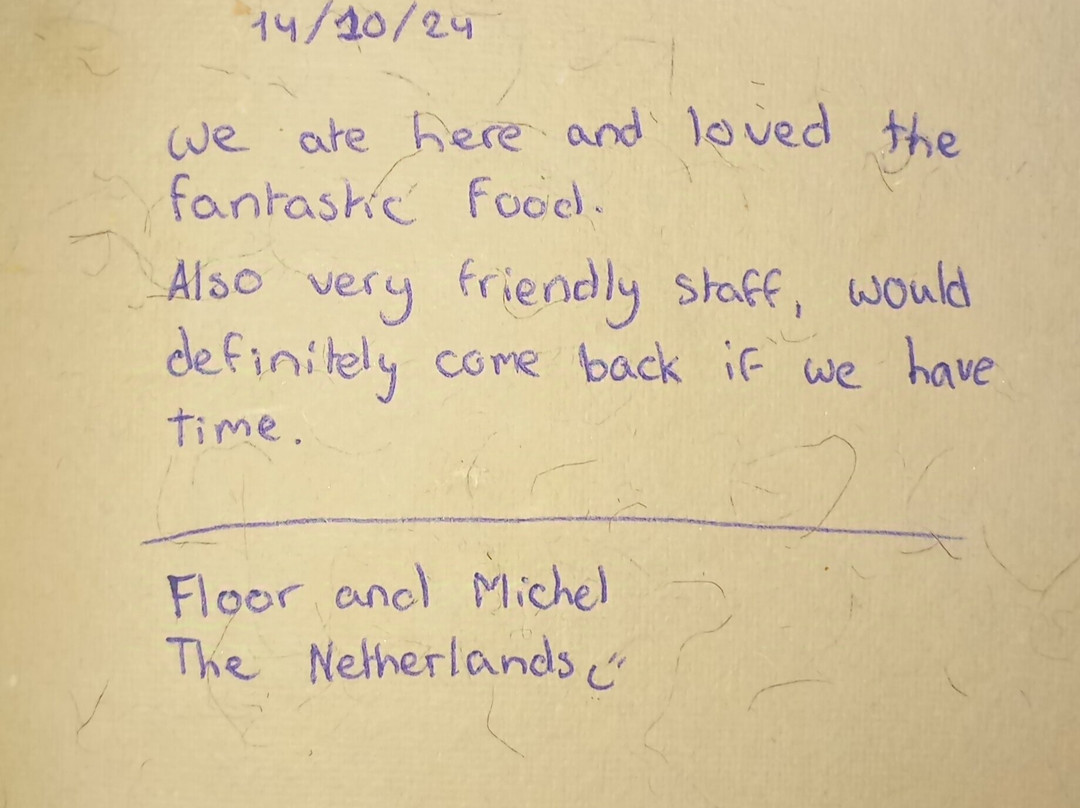 14/10/24
we ate here and loved the
fantastic food.
Also very friendly staff, would
definitely come back if we have
time.
Floor and Michel
The Netherlands